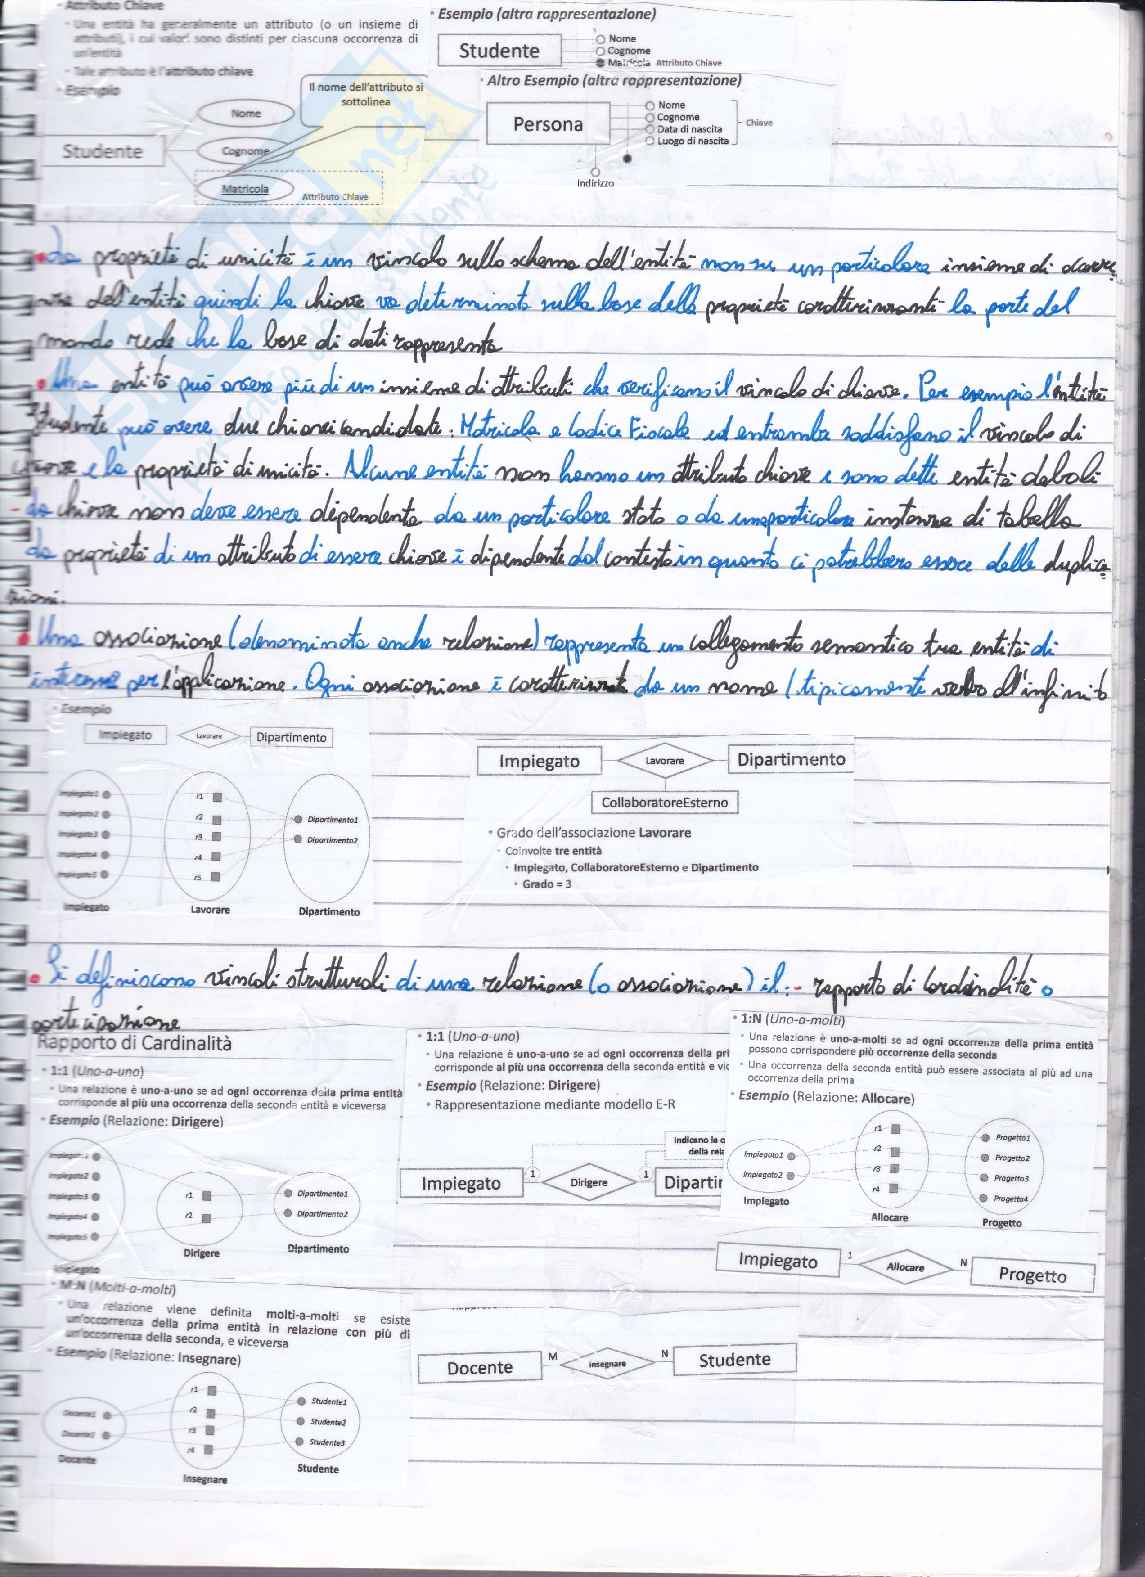 Attributo Chiave
Una entità ha generalmente un attributo (o un insieme di
attributi), i cui valori sono distinti per ciascuna occorrenza di
un'entità
Tale attributo è l'attributo chiave
Esempio
Il nome dell'attributo si
sottolinea
Nome
Studente
Cognome
Matricola
Attributo Chiave
Esempio (altra rappresentazione)
Studente
Nome
Cognome
Matricola Attributo Chiave
Altro Esempio (altra rappresentazione)
Persona
Nome
Cognome
Data di nascita
Luogo di nascita
Chiave
Indirizzo
La proprietà di unicità è un vincolo sullo schema dell'entità non su un particolare insieme di occorre
nze dell'entità quindi la chiave va determinata sulla base delle proprietà caratterizzanti la parte del
mondo reale che la base di dati rappresenta
Una entità può avere più di un insieme di attributi che verificano il vincolo di chiave. Per esempio l'entità
Studente può avere due chiavi candidate: Matricola e Codice Fiscale ed entrambe soddisfano il vincolo di
chiave e la proprietà di unicità. Alcune entità non hanno un attributo chiave e sono dette entità deboli
- La chiave non deve essere dependente da un particolare stato o da una particolare instanza di tabella
La proprietà di un attributo di essere chiave è dipendente dal contesto in quanto ci potrebbero essere delle duplica
zioni.
Una associazione (denominata anche relazione) rappresenta un collegamento semantico tra entità di
interesse per l'applicazione. Ogni associazione è caratterizzata da un nome (tipicamente verbo all'infinito
Esempio
Impiegato Lavorare Dipartimento
Impiegato1
Impiegato2
Impiegato3
Impiegato4
Impiegato5
r1
r2
r3
r4
r5
Dipartimento1
Dipartimento2
Impiegato Lavorare Dipartimento
Impiegato Lavorare Dipartimento
CollaboratoreEsterno
Grado dell'associazione Lavorare
Coinvolte tre entità
Impiegato, CollaboratoreEsterno e Dipartimento
Grado = 3
Si definiscono vincoli strutturali di una relazione (o associazione) il: - rapporto di Cardinalità o
partecipazione
Rapporto di Cardinalità
1:1 (Uno-a-uno)
Una relazione è uno-a-uno se ad ogni occorrenza della prima entità
corrisponde al più una occorrenza della seconda entità e viceversa
Esempio (Relazione: Dirigere)
Impiegato1
Impiegato2
Impiegato3
Impiegato4
Impiegato5
r1
r2
Dipartimento1
Dipartimento2
Impiegato Dirigere Dipartimento
1:1 (Uno-a-uno)
Una relazione è uno-a-uno se ad ogni occorrenza della pri
corrisponde al più una occorrenza della seconda entità e vic
Esempio (Relazione: Dirigere)
Rappresentazione mediante modello E-R
Indicano la c
della rela
Impiegato 1 Dirigere 1 Dipartir
1:N (Uno-a-molti)
Una relazione è uno-a-molti se ad ogni occorrenza della prima entità
possono corrispondere più occorrenze della seconda
Una occorrenza della seconda entità può essere associata al più ad una
occorrenza della prima
Esempio (Relazione: Allocare)
Impiegato1
Impiegato2
r1
r2
r3
r4
Progetto1
Progetto2
Progetto3
Progetto4
Impiegato Allocare Progetto
Impiegato 1 Allocare N Progetto
M:N (Molti-a-molti)
Una relazione viene definita molti-a-molti se esiste
un'occorrenza della prima entità in relazione con più di
un'occorrenza della seconda, e viceversa
Esempio (Relazione: Insegnare)
Docente1
Docente2
r1
r2
r3
r4
Studente1
Studente2
Studente3
Docente Insegnare Studente
Docente M Insegnare N Studente